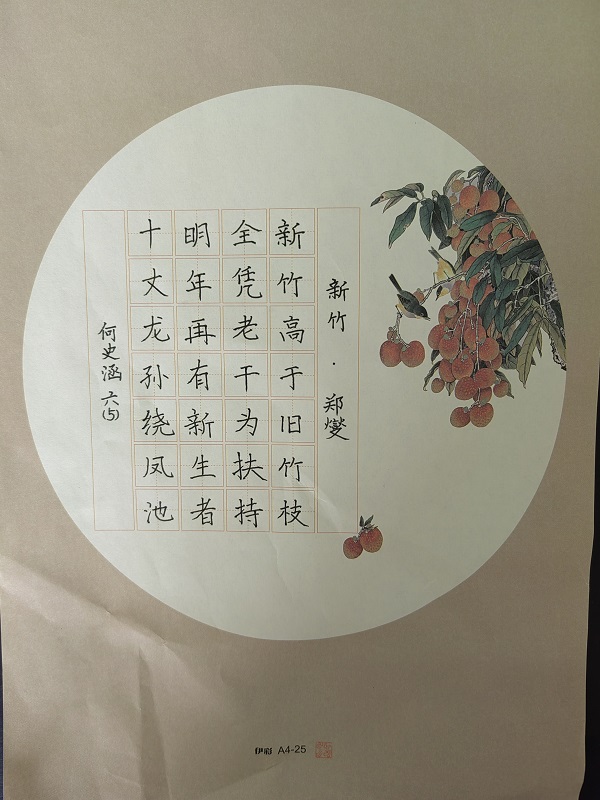 新竹·郑燮
新竹高于旧竹枝
全凭老干为扶持
明年再有新生者
十丈龙孙绕凤池
何史涵 六(5)
伊彩 A4-25